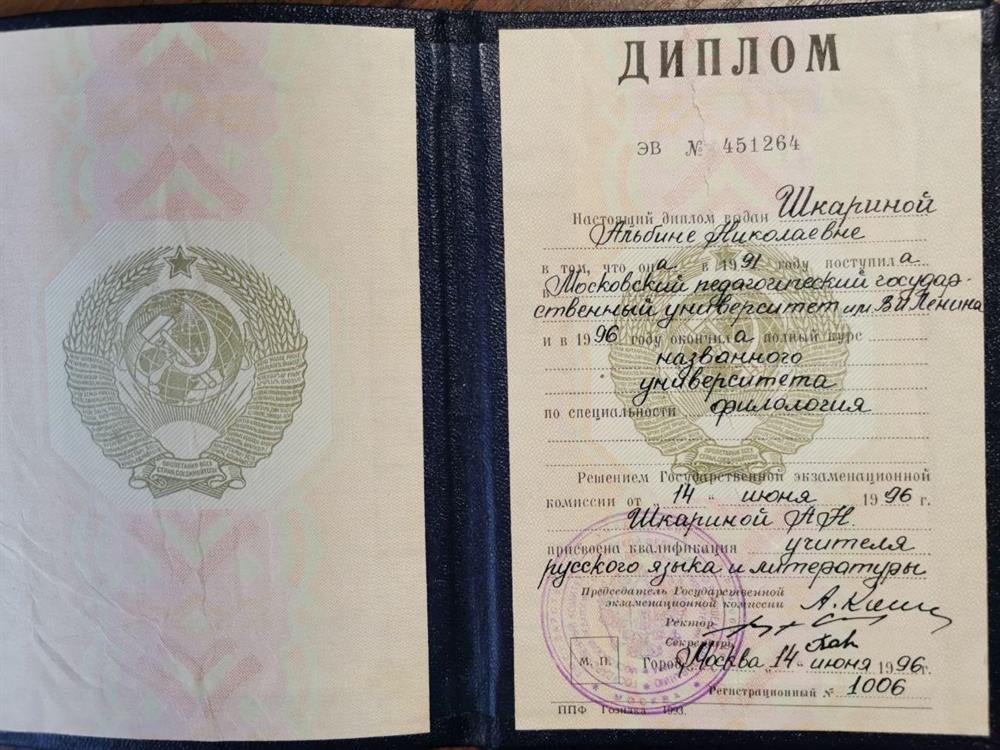 ПРОЛЕТАРИИ ВСЕХ
СТРАН, СОЕДИНЯЙТЕСЬ!
ДИПЛОМ
ЭВ № 451264
Настоящий диплом выдан Шкариной
Альбине Николаевне
в том, что она в 1991 году поступила
в Московский педагогический государ-
ственный университет им. В.И. Ленина
и в 1996 году окончила полный курс
названного
университета
по специальности филология
Решением Государственной экзаменационной
комиссии от "14" июня 1996 г.
Шкариной А.Н.
присвоена квалификация учителя
русского языка и литературы
Председатель Государственной
экзаменационной комиссии
Ректор
Секретарь
М. П. Город Москва "14" июня 1996 г.
Регистрационный № 1006
МОСКВА
ППФ Гознака 1993.